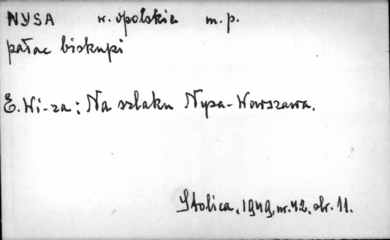 NYSA w. opolskie m. p.
pałac biskupi
E. Wi-za: Na szlaku Nysa-Warszawa.
Stolica, 1949, nr. 42, str. 11.